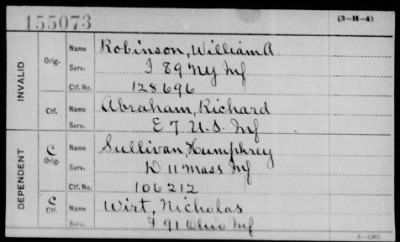 155073
(3-H-4)
INVALID
Orig.
Name Robinson, William A
Serv. I 89 NY Inf
Ctf. No. 128696
Ctf.
Name Abraham, Richard
Serv. E 7 U.S. Inf
DEPENDENT
C Orig.
Name Sullivan, Humphrey
Serv. D 11 Mass Inf
Ctf. No. 106212
C Ctf.
Name Wirt, Nicholas
Serv. F 91 Ohio Inf